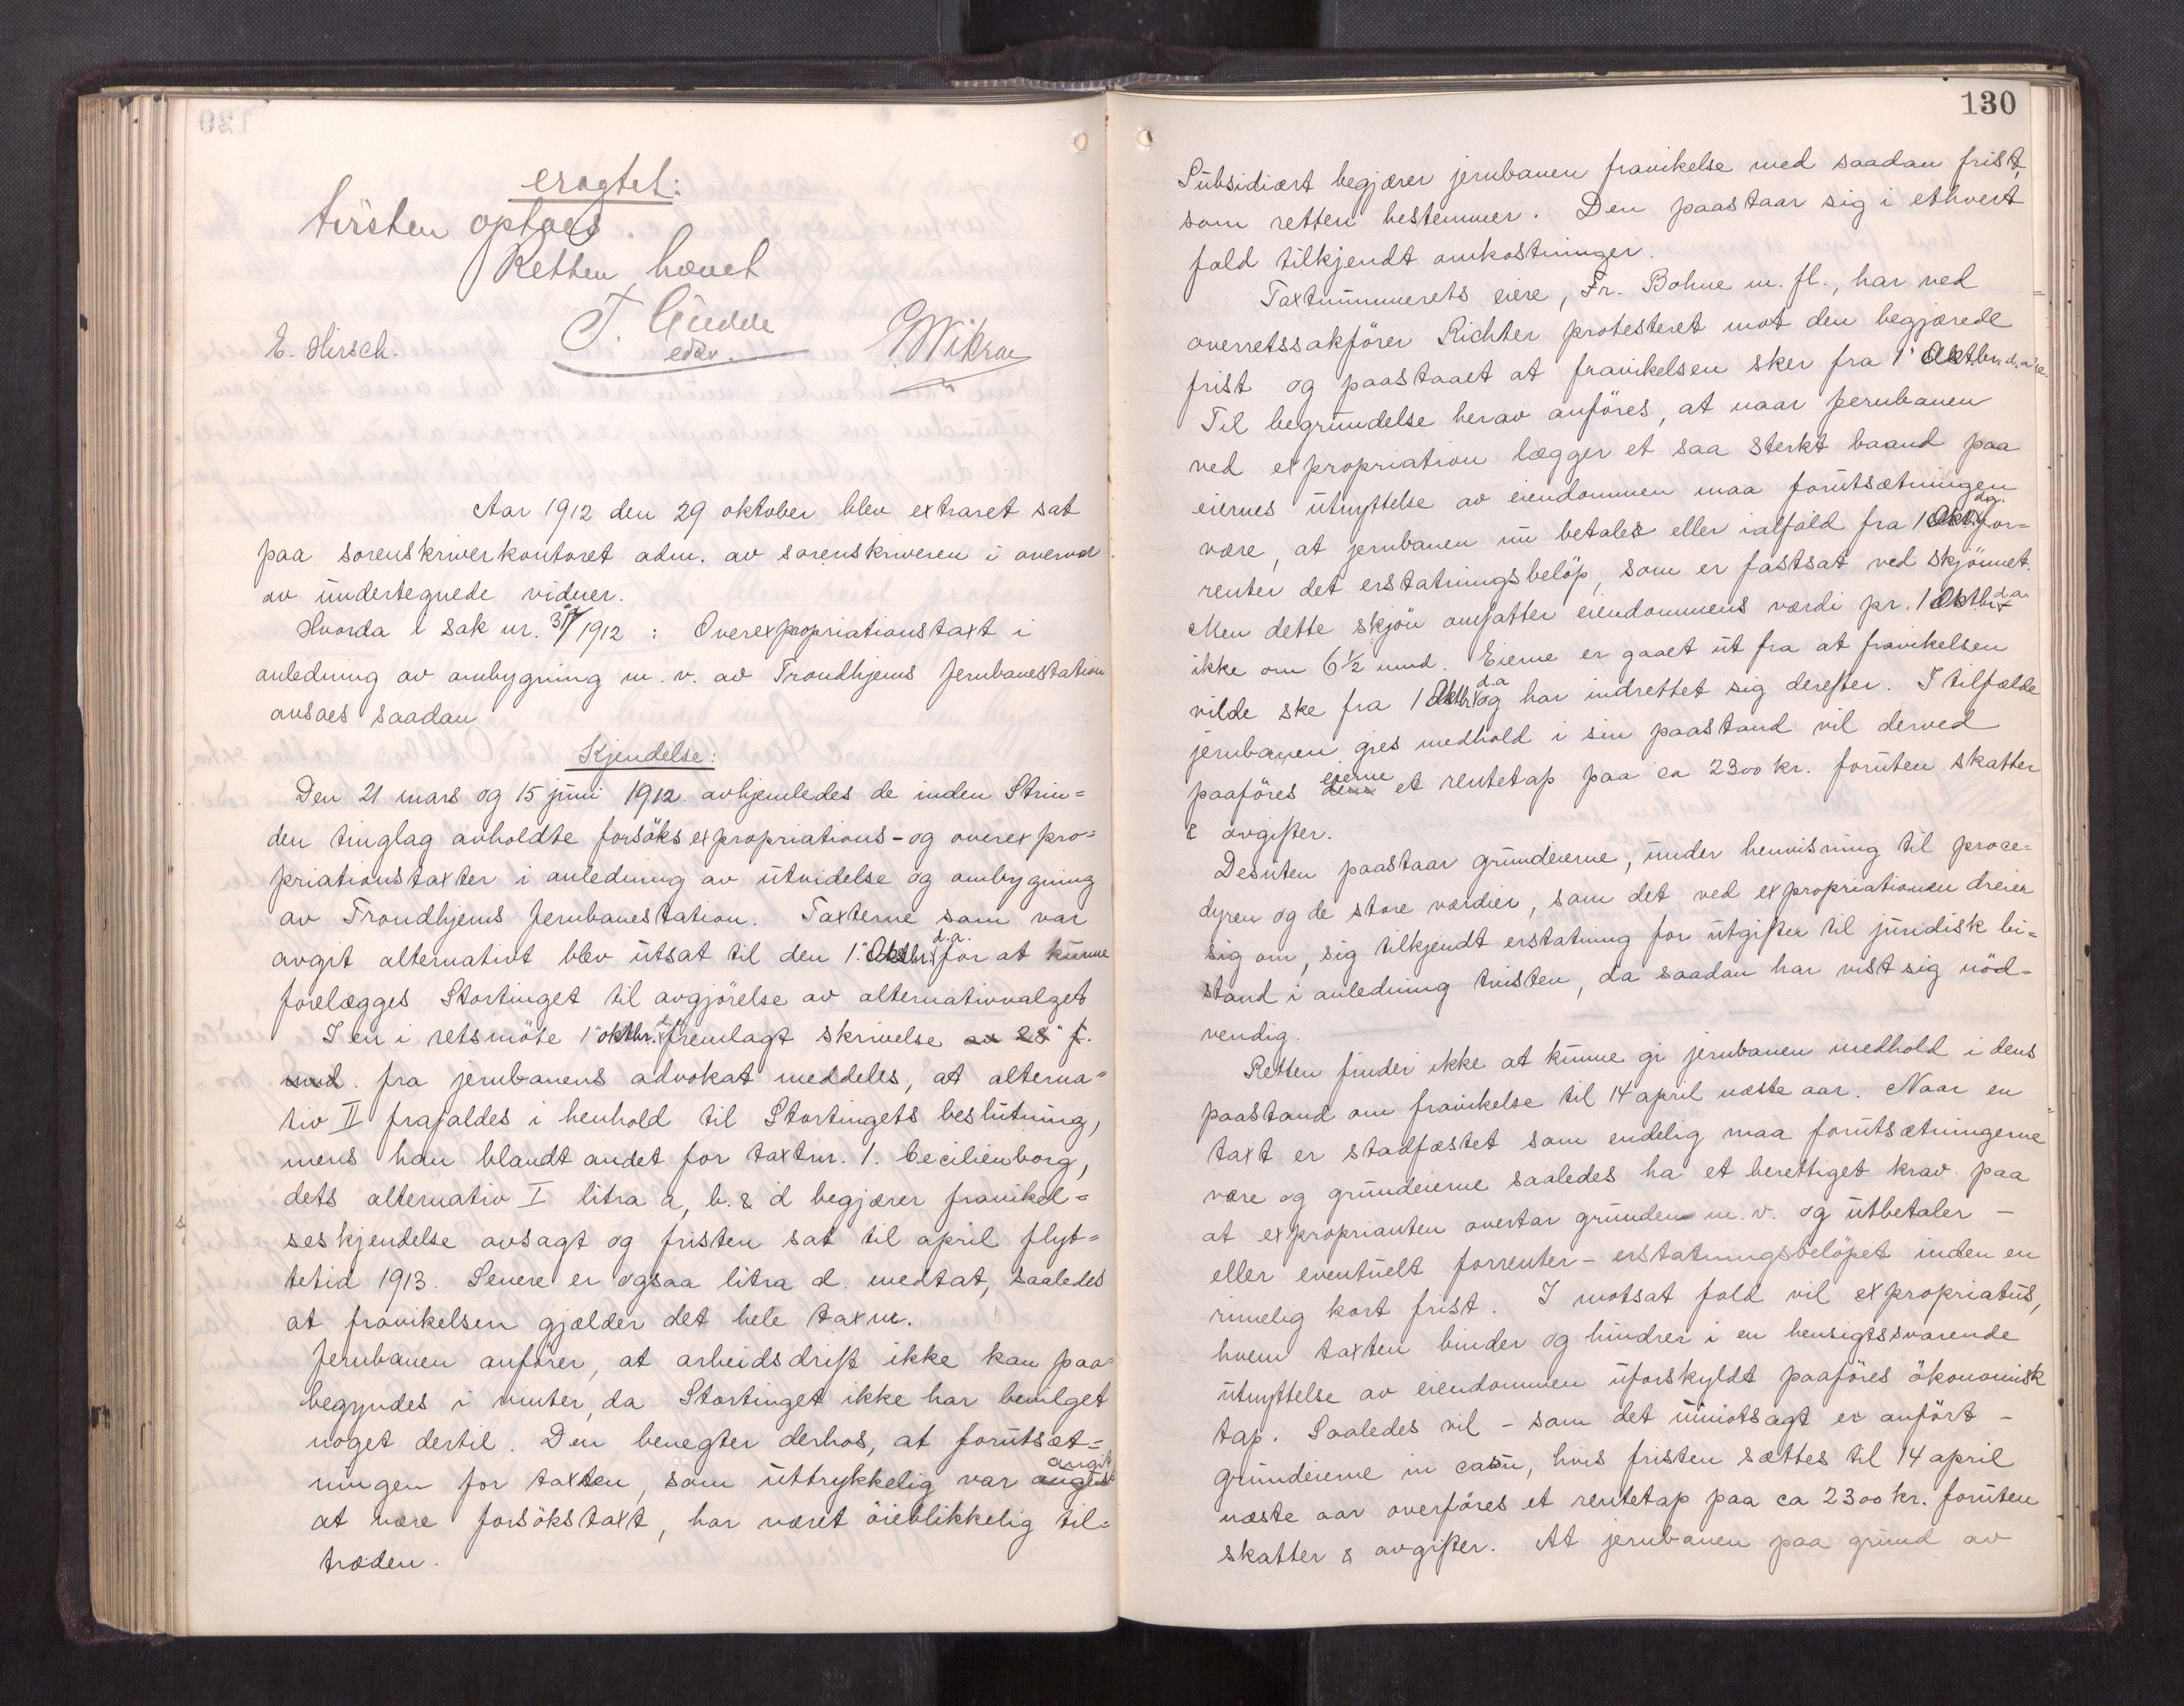 eragtet:
tvisten optaes.
Retten hævet
E. Hirsch. T. Gudde
edsv.
Aar 1912 den 29 oktober blev extraret sat
paa sorenskriverkontoret adm. av sorenskriveren i overvær
av undertegnede vidner.
Hvorda i sak nr. /1912 : Overexpropriationstaxt i
anledning av ombygning m. v. av Trondhjems Jernbanestation
avsaes saadan
Kjendelse:
Den 21 mars og 15 juni 1912 avhjemledes de inden Strin=
den tinglag avholdte forsöks expropriations- og overexpro=
priationstaxter i anledning av utvidelse og ombygning
av Trondhjems Jernbanestation. Taxterne som var
avgit alternativt blev utsat til den 1. Oktbr. d.a. for at kunne
forelægges Stortinget til avgjörelse av alternativvalget
I en i retsmöte 1 oktbr. fremlagt skrivelse av 28 f.
md. fra jernbanens advokat meddeles, at alterna=
tiv II frafaldes i henhold til Stortingets beslutning,
mens han blandt andet for taxtnr. 1. Cecilienborg,
dets alternativ I litra a, b. & d begjærer fravikel=
seskjendelse avsagt og fristen sat til april flyt=
tetid 1913. Senere er ogsaa litra d. medtat, saaledes
at fravikelsen gjælder det hele taxnr.
Jernbanen anfører, at arbeidsdrift ikke kan paa=
begyndes i vinter, da Stortinget ikke har bevilget
noget dertil. Den benegter derhos, at forutsæt=
ningen for taxten, som uttrykkelig var angit
at være forsökstaxt, har været öieblikkelig til=
træden.
130
Subsidiært begjærer jernbanen fravikelse med saadan frist,
som retten bestemmer. Den paastaar sig i ethvert
fald tilkjendt omkostninger.
Taxtnummerets eiere, Fr. Bohne m. fl., har ved
overretssakförer Richter protesteret mot den begjærede
frist og paastaaet at fravikelsen sker fra 1 Oktbr. d.a.
Til begrundelse herav anföres, at naar Jernbanen
ved expropriation lægger et saa sterkt baand paa
eiernes utnyttelse av eiendommen maa forutsætningen
være, at jernbanen nu betaler eller ialfald fra 1 Oktbr. d.a. for=
renter det erstatningsbelöp, som er fastsat ved skjönnet.
Men dette skjön omfatter eiendommens værdi pr. 1 Oktbr. d.a.
ikke om 6½ mnd. Eierne er gaaet ut fra at fravikelsen
vilde ske fra 1 Oktbr. d.a og har indrettet sig derefter. I tilfælde
jernbanen gies medhold i sin paastand vil derved
paaföres dem eierne et rentetap paa ca 2300 kr. foruten skatter
& avgifter.
Desuten paastaar grundeierne, under henvisning til proce=
dyren og de store værdier, som det ved expropriationen dreier
sig om, sig tilkjendt erstatning for utgifter til juridisk bi=
stand i anledning tvisten, da saadan har vist sig nöd=
vendig.
Retten finder ikke at kunne gi jernbanen medhold i dens
paastand om fravikelse til 14 april næste aar. Naar en
taxt er stadfæstet som endelig maa forutsætningerne
være og grundeierne saaledes ha et berettiget krav paa
at exproprianten overtar grunden m. v. og utbetaler -
eller eventuelt forrenter - erstatningsbelöpet inden en
rimelig kort frist. I motsat fald vil expropriatus,
hvem taxten binder og hindrer i en hensigtssvarende
utnyttelse av eiendommen uforskyldt paaföres ökonomisk
tap. Saaledes vil - som det uimotsagt er anfört -
grundeierne in casu, hvis fristen sættes til 14 april
næste aar overföres et rentetap paa ca 2300 kr. foruten
skatter & avgifter. At jernbanen paa grund av